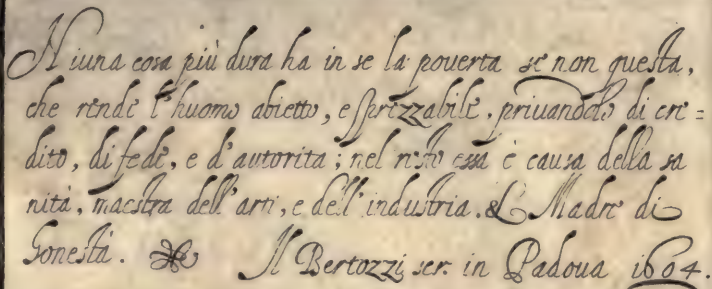 Niuna cosa più dura ha in se la pouerta se non questa,
che rende l'huomo abietto, e sprezzabile, priuandolo di cre=
dito, di fede, e d'autorita; nel resto essa è causa della sa
nità, maestra dell'arti, e dell'industria. & Madre di
honestà. Il Bertozzi scr. in Padoua 1604.